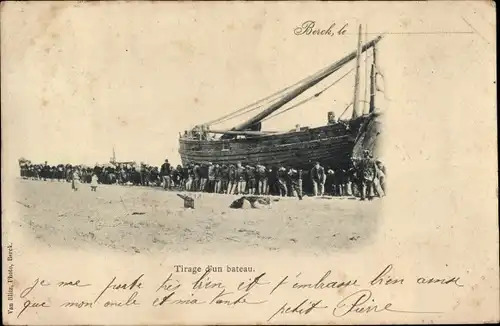 Berck, le
Tirage d'un bateau.
Van Blitz, Photo, Berck.
Je me porte très bien et j'embrasse bien ainsi
que mon parrain et ma tante petit Pierre